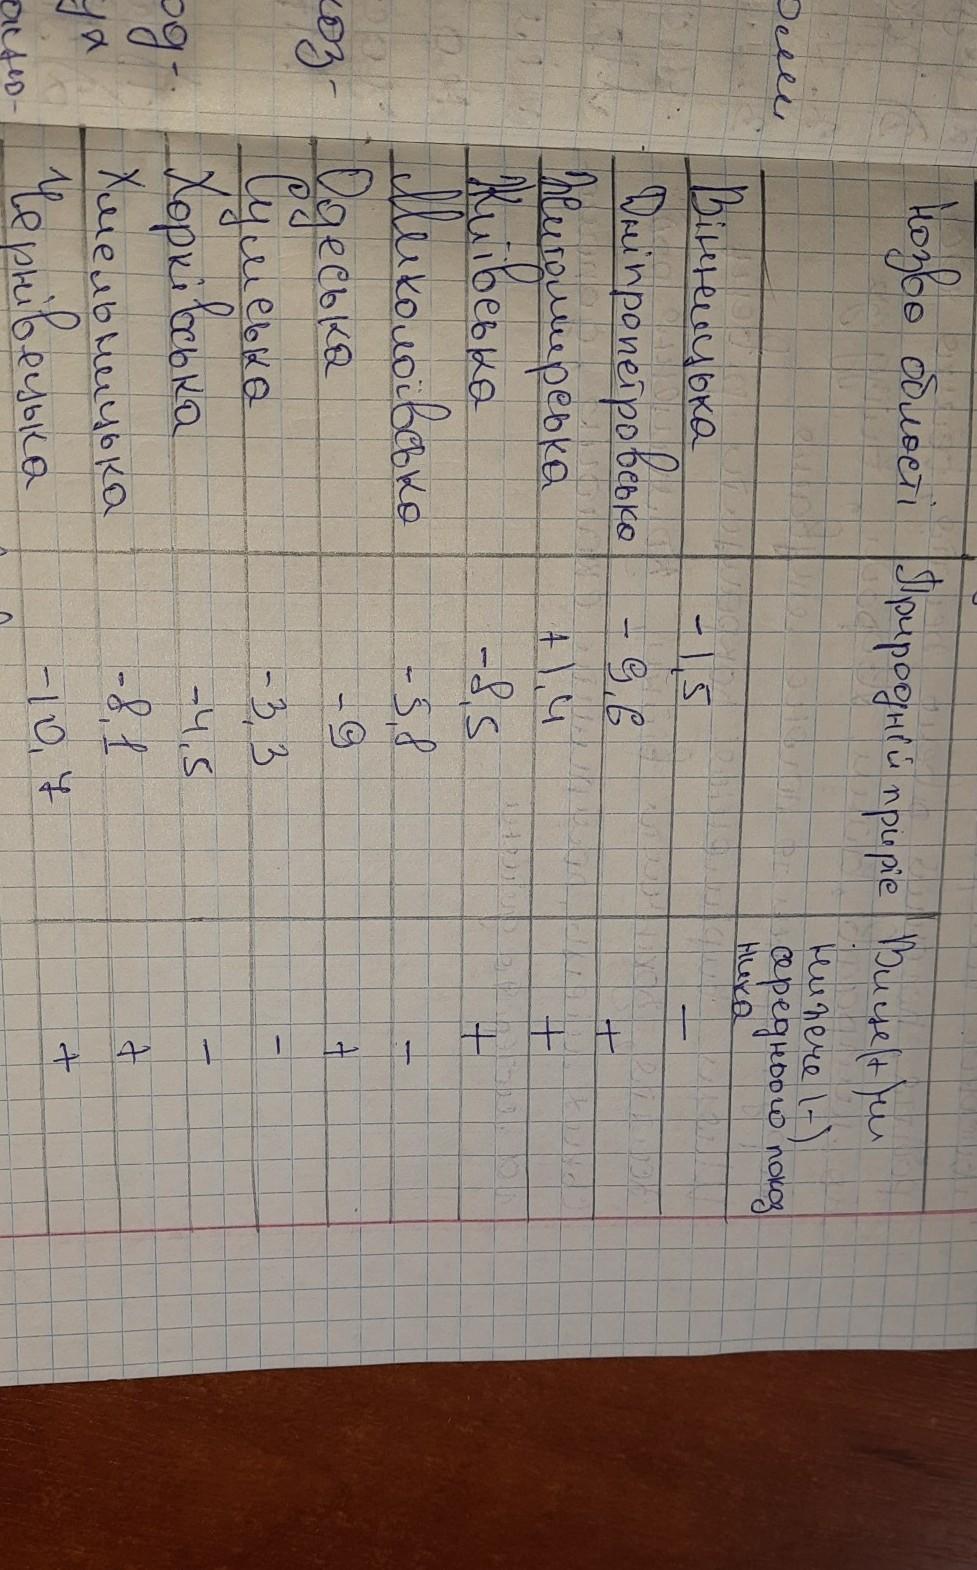 Назва області Природній приріс Вище(+)чи
нижече (-)
середнього показ
ника
Вінницька -1,5 -
Дніпропетровська -9,6 +
Житомирська +1,4 +
Київська -8,5 +
Миколаївська -5,8 -
Одеська -9 +
Сумська -3,3 -
Харківська -4,5 -
Хмельницька -8,1 +
Чернівецька -10,7 +